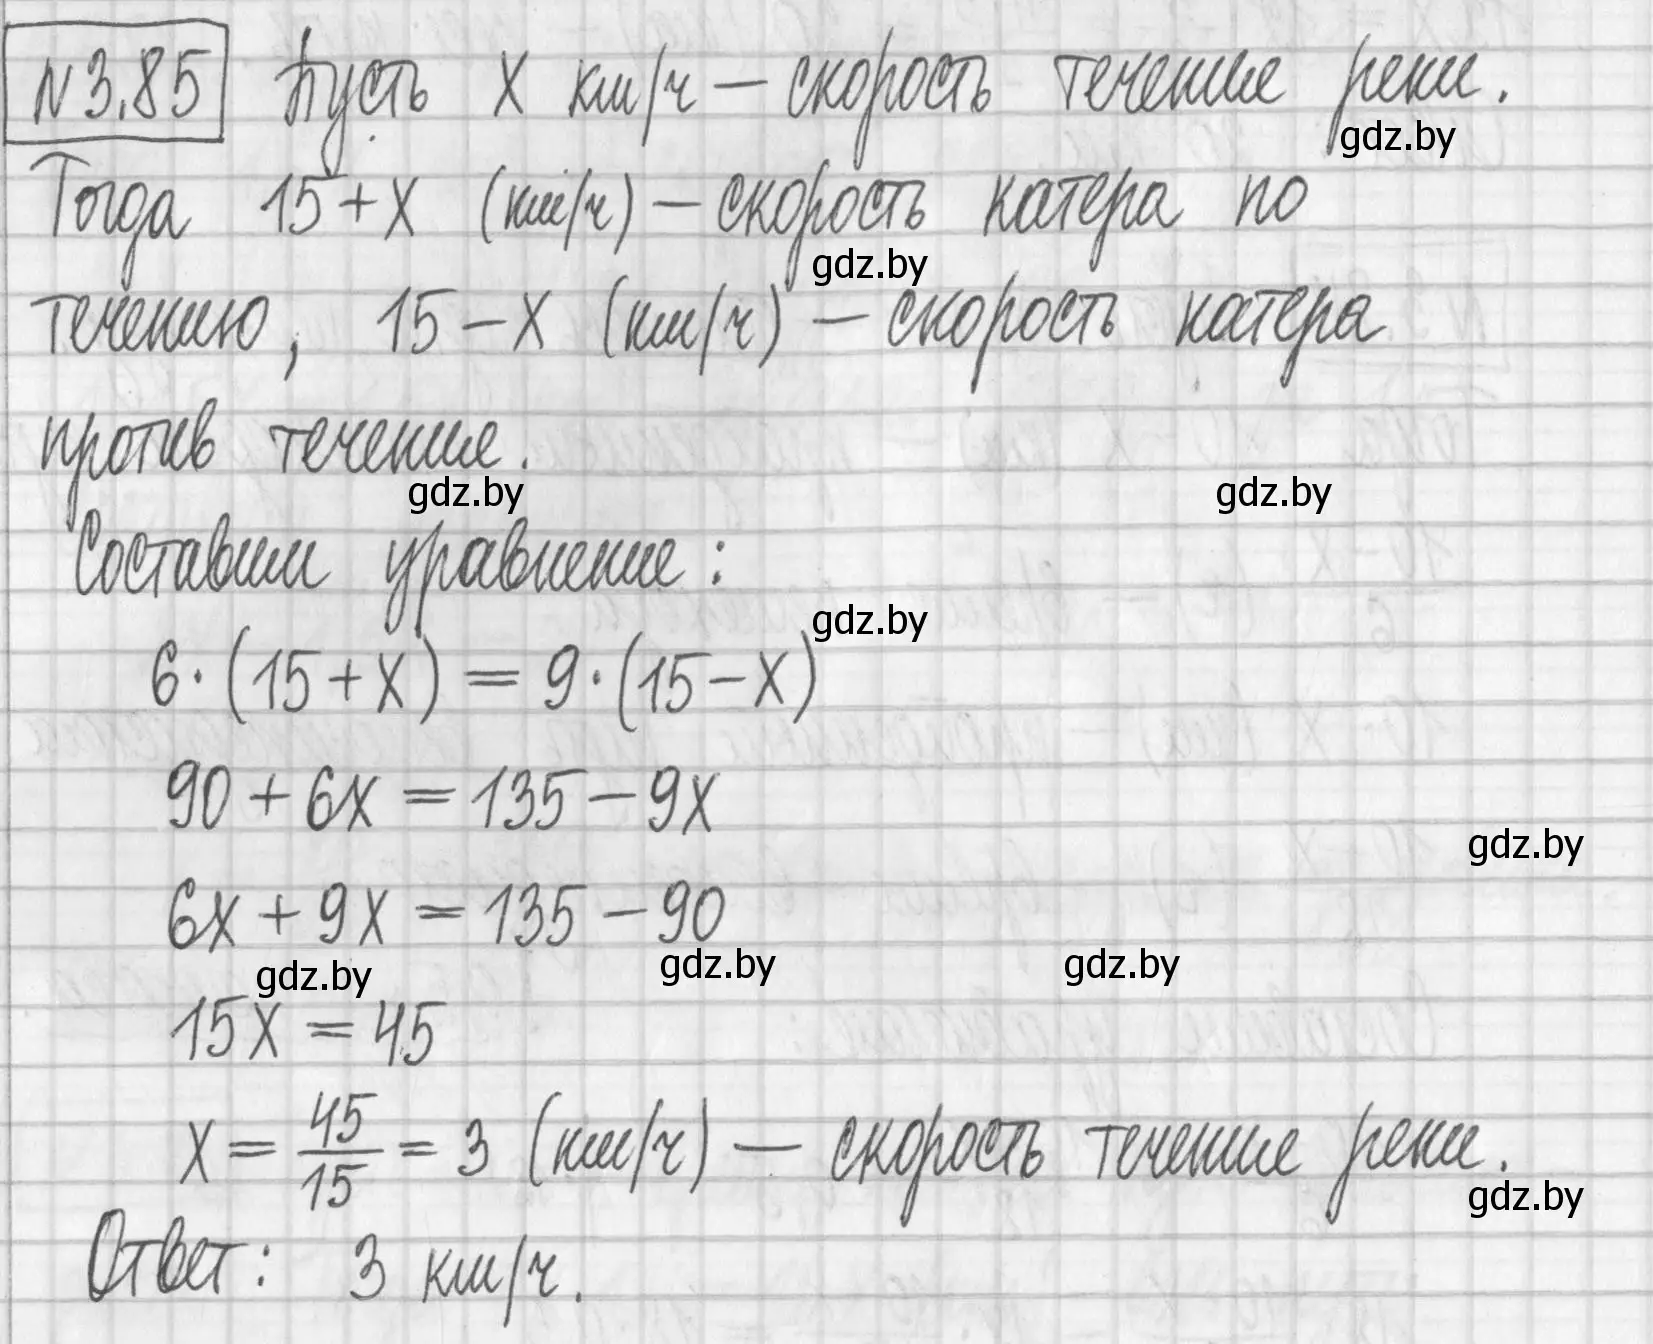 N3.85 Пусть x км/ч – скорость течение реки.
gdz.by
Тогда 15 + x (км/ч) – скорость катера по
gdz.by
течению, 15 – x (км/ч) – скорость катера
против течение.
gdz.by gdz.by
Составим уравнение:
gdz.by
6·(15 + x) = 9·(15 – x)
90 + 6x = 135 – 9x
gdz.by
6x + 9x = 135 – 90
gdz.by gdz.by gdz.by
15x = 45
x = 45/15 = 3 (км/ч) – скорость течение реки.
gdz.by
Ответ: 3 км/ч.